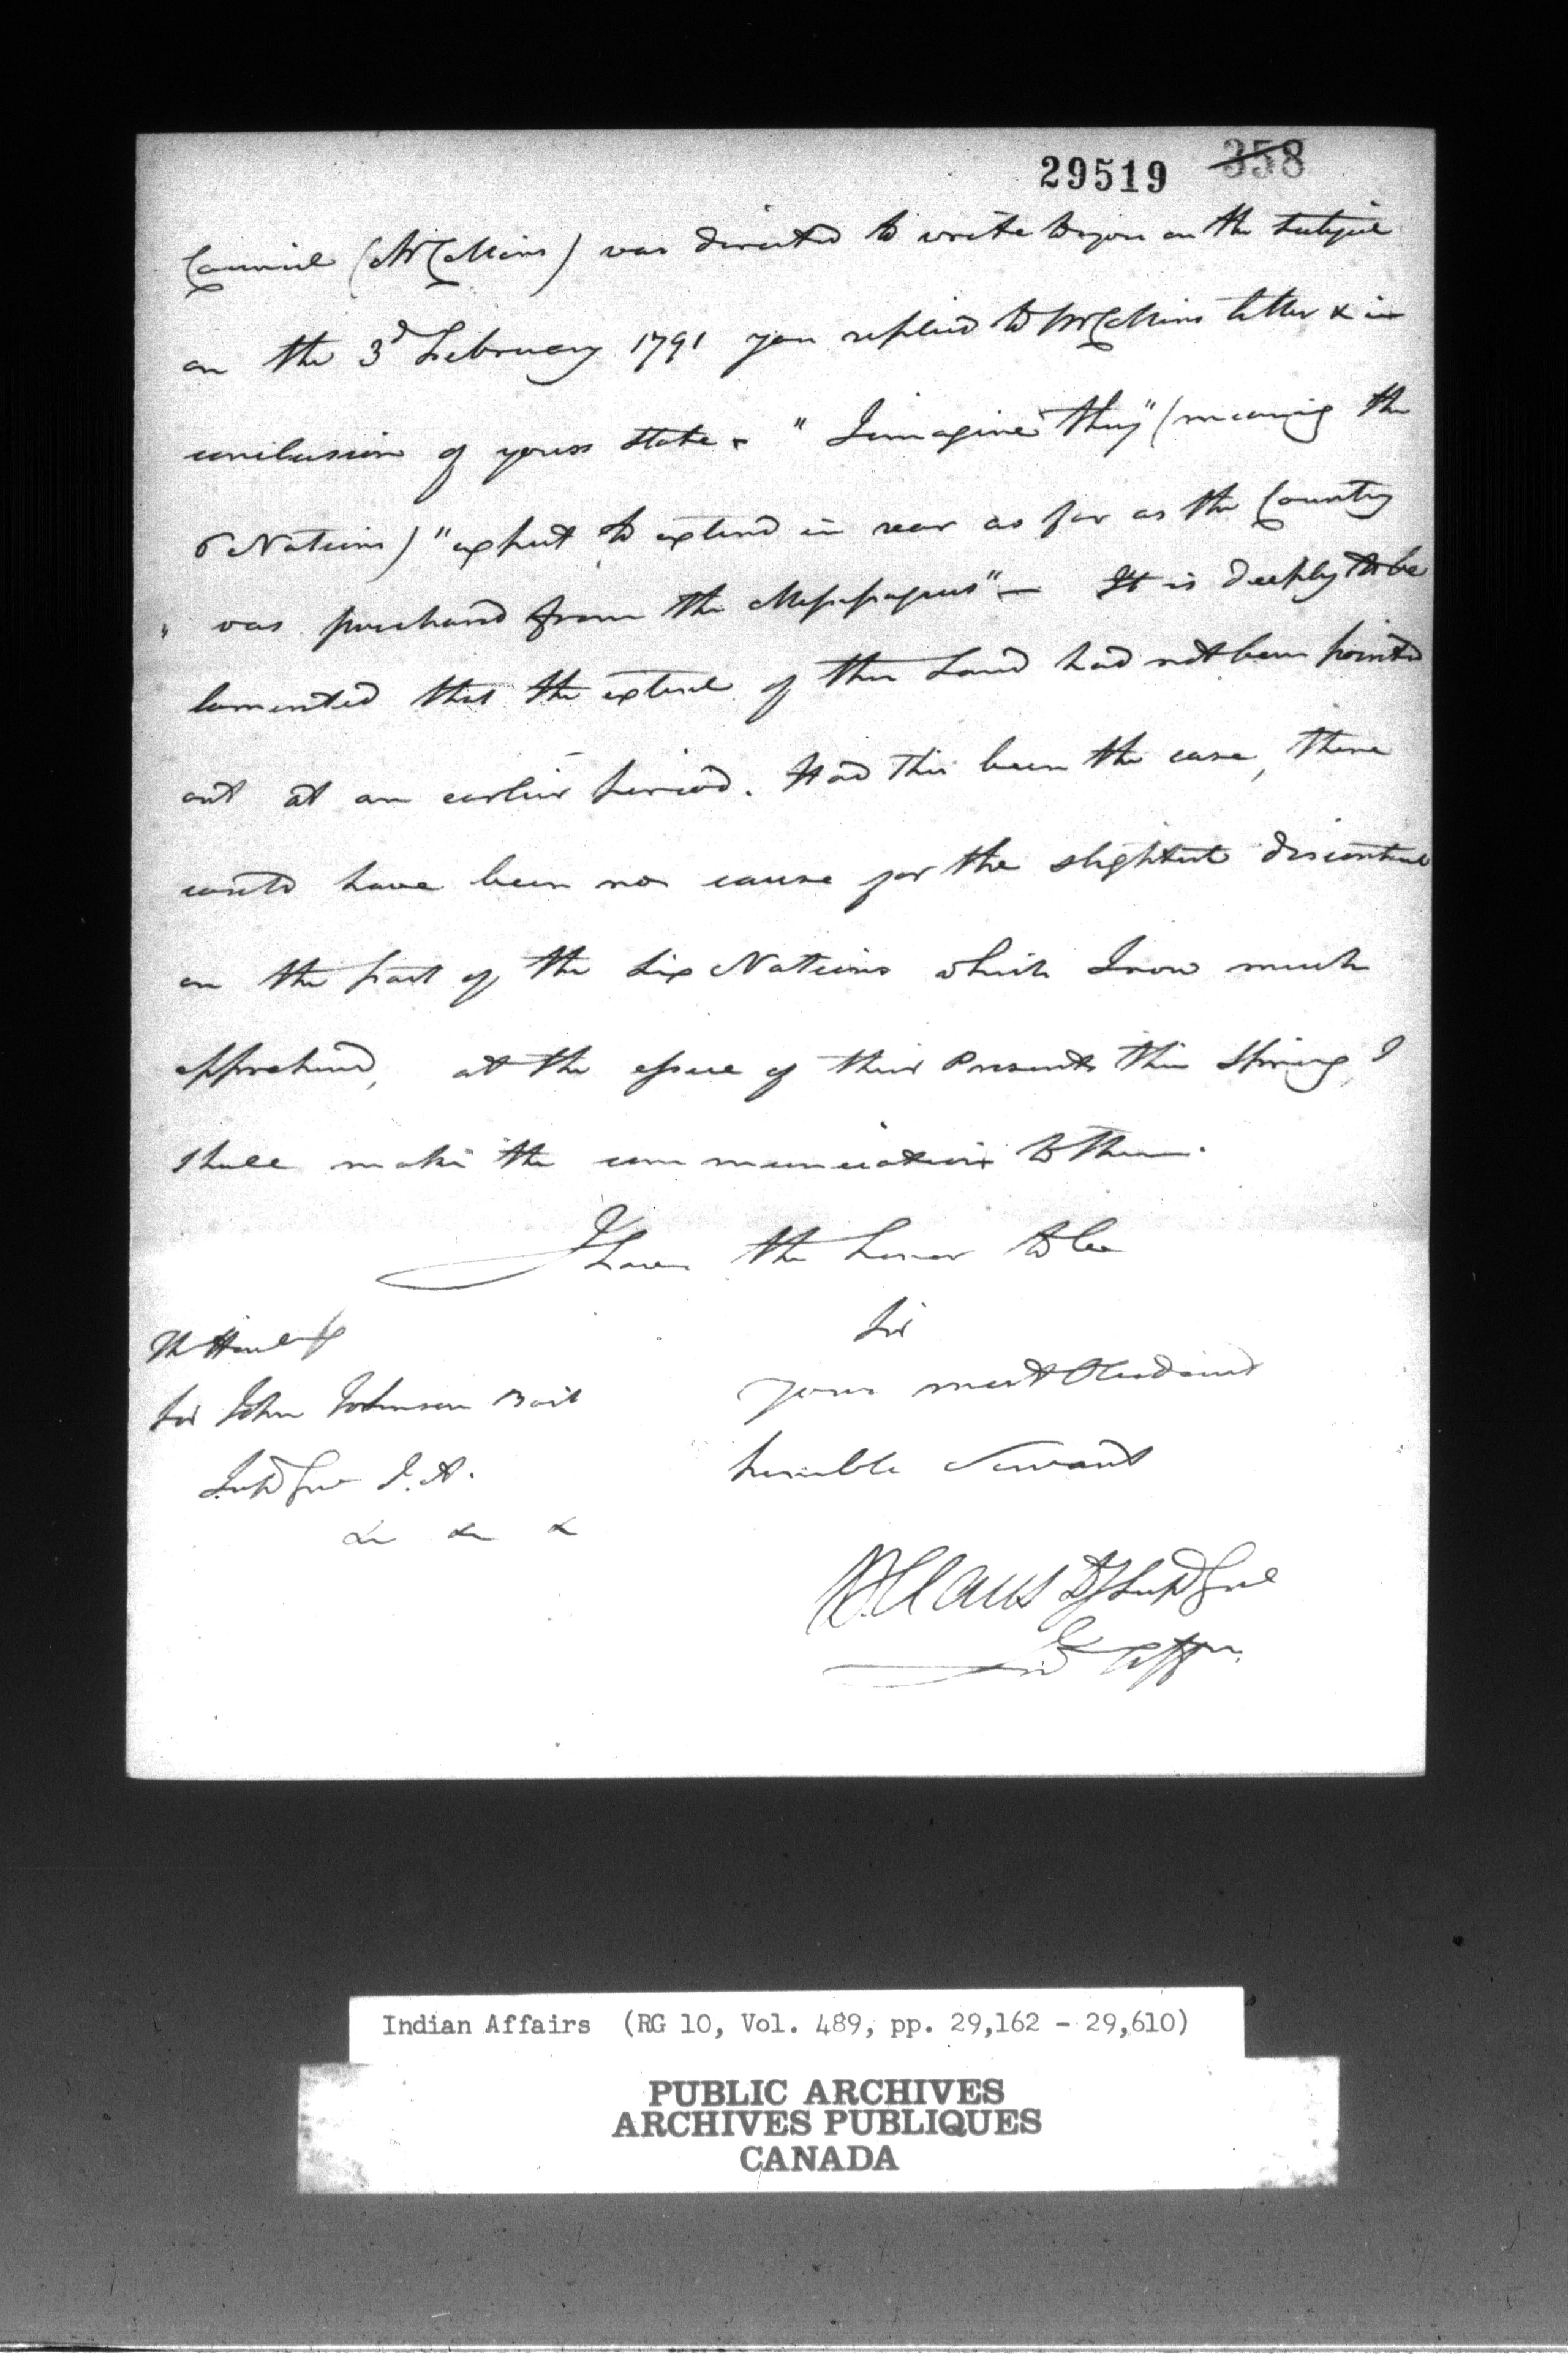 29519 358
Council (Mr Collins) was directed to write to you on the subject
on the 3d February 1791 you replied to Mr Collins letter & in
conclusion of yours state - " I imagine they" (meaning the
6 Nations) "expect to extend in rear as far as the Country
" was purchased from the Messissagues" — It is deeply to be
lamented that the extent of this Land had not been pointed
out at an earlier period. Had this been the case, there
could have been no cause for the slightest discontent
on the part of the Six Nations which I now much
apprehend, at the issue of their Presents this Spring, I
shall make the communication to them.
I have the honor to be
Sir
your most Obedient
humble Servant
The Honble
Sir John Johnson Bart
Supt Genl I. A.
& & &
W. Claus Dy Supt Genl
Ind Affrs.
Indian Affairs (RG 10, Vol. 489, pp. 29,162 - 29,610)
PUBLIC ARCHIVES
ARCHIVES PUBLIQUES
CANADA